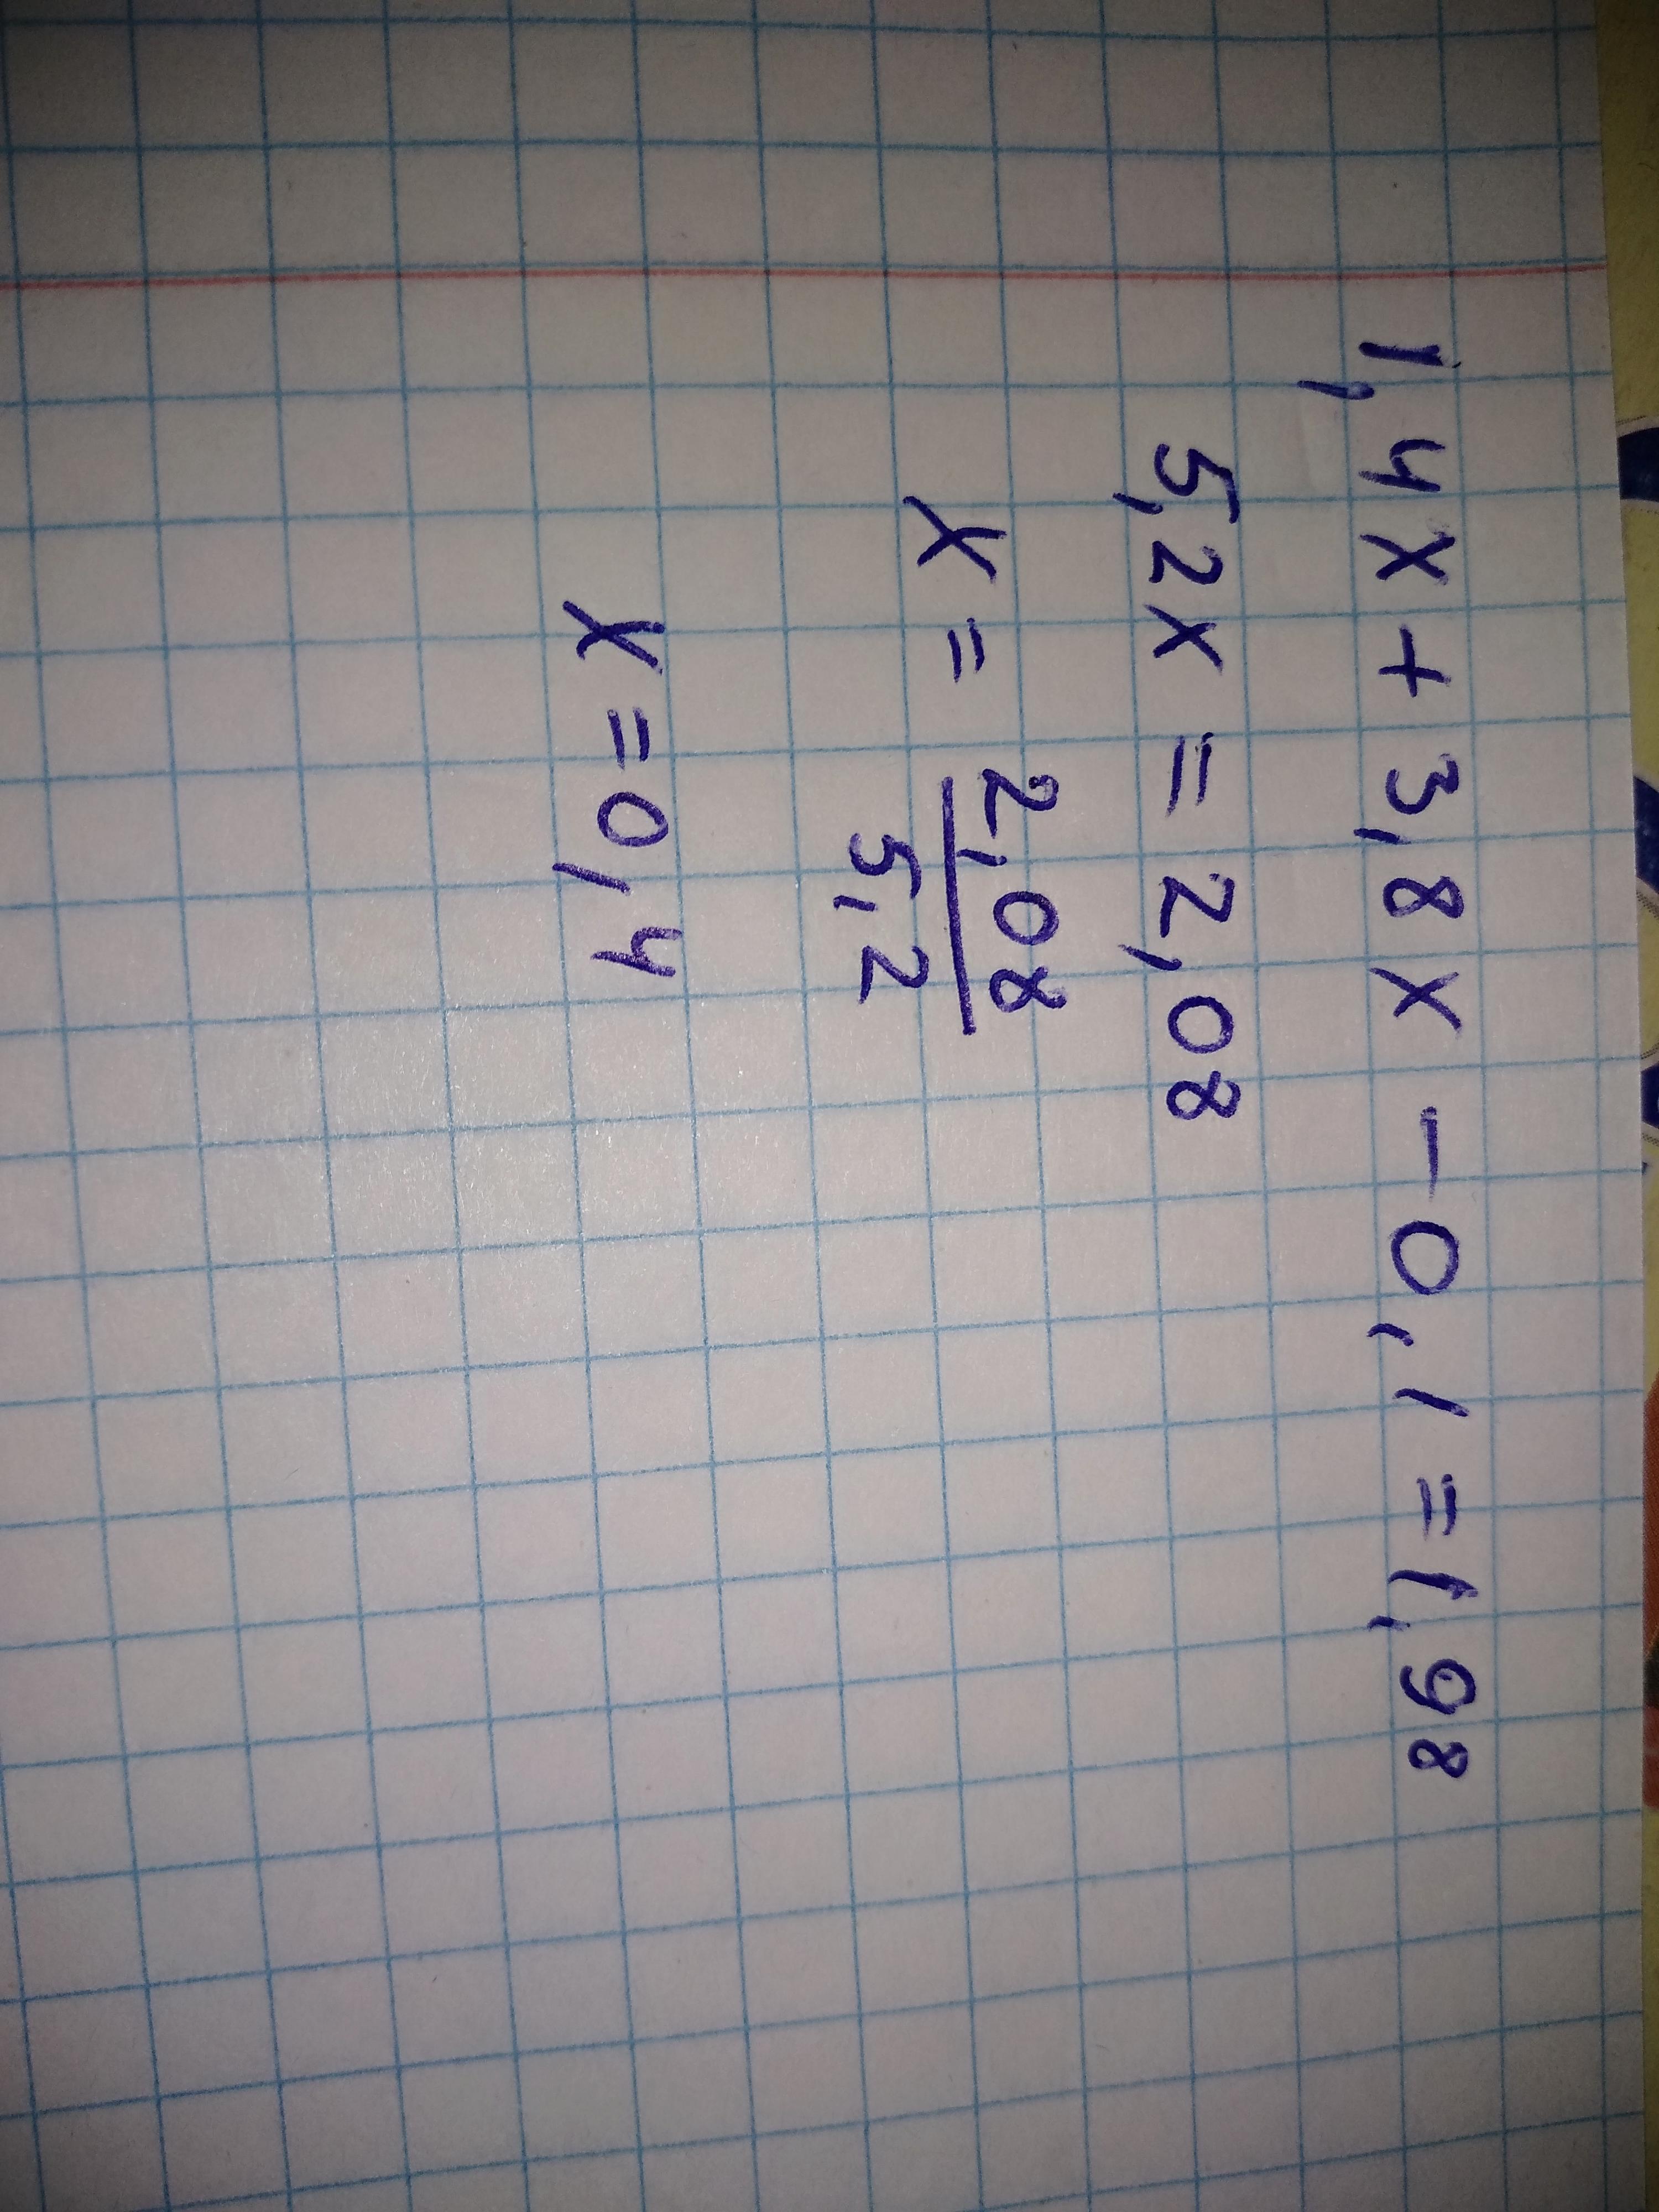 1,4x + 3,8x - 0,1 = 1,98
5,2x = 2,08
x = 2,08
5,2
x = 0,4